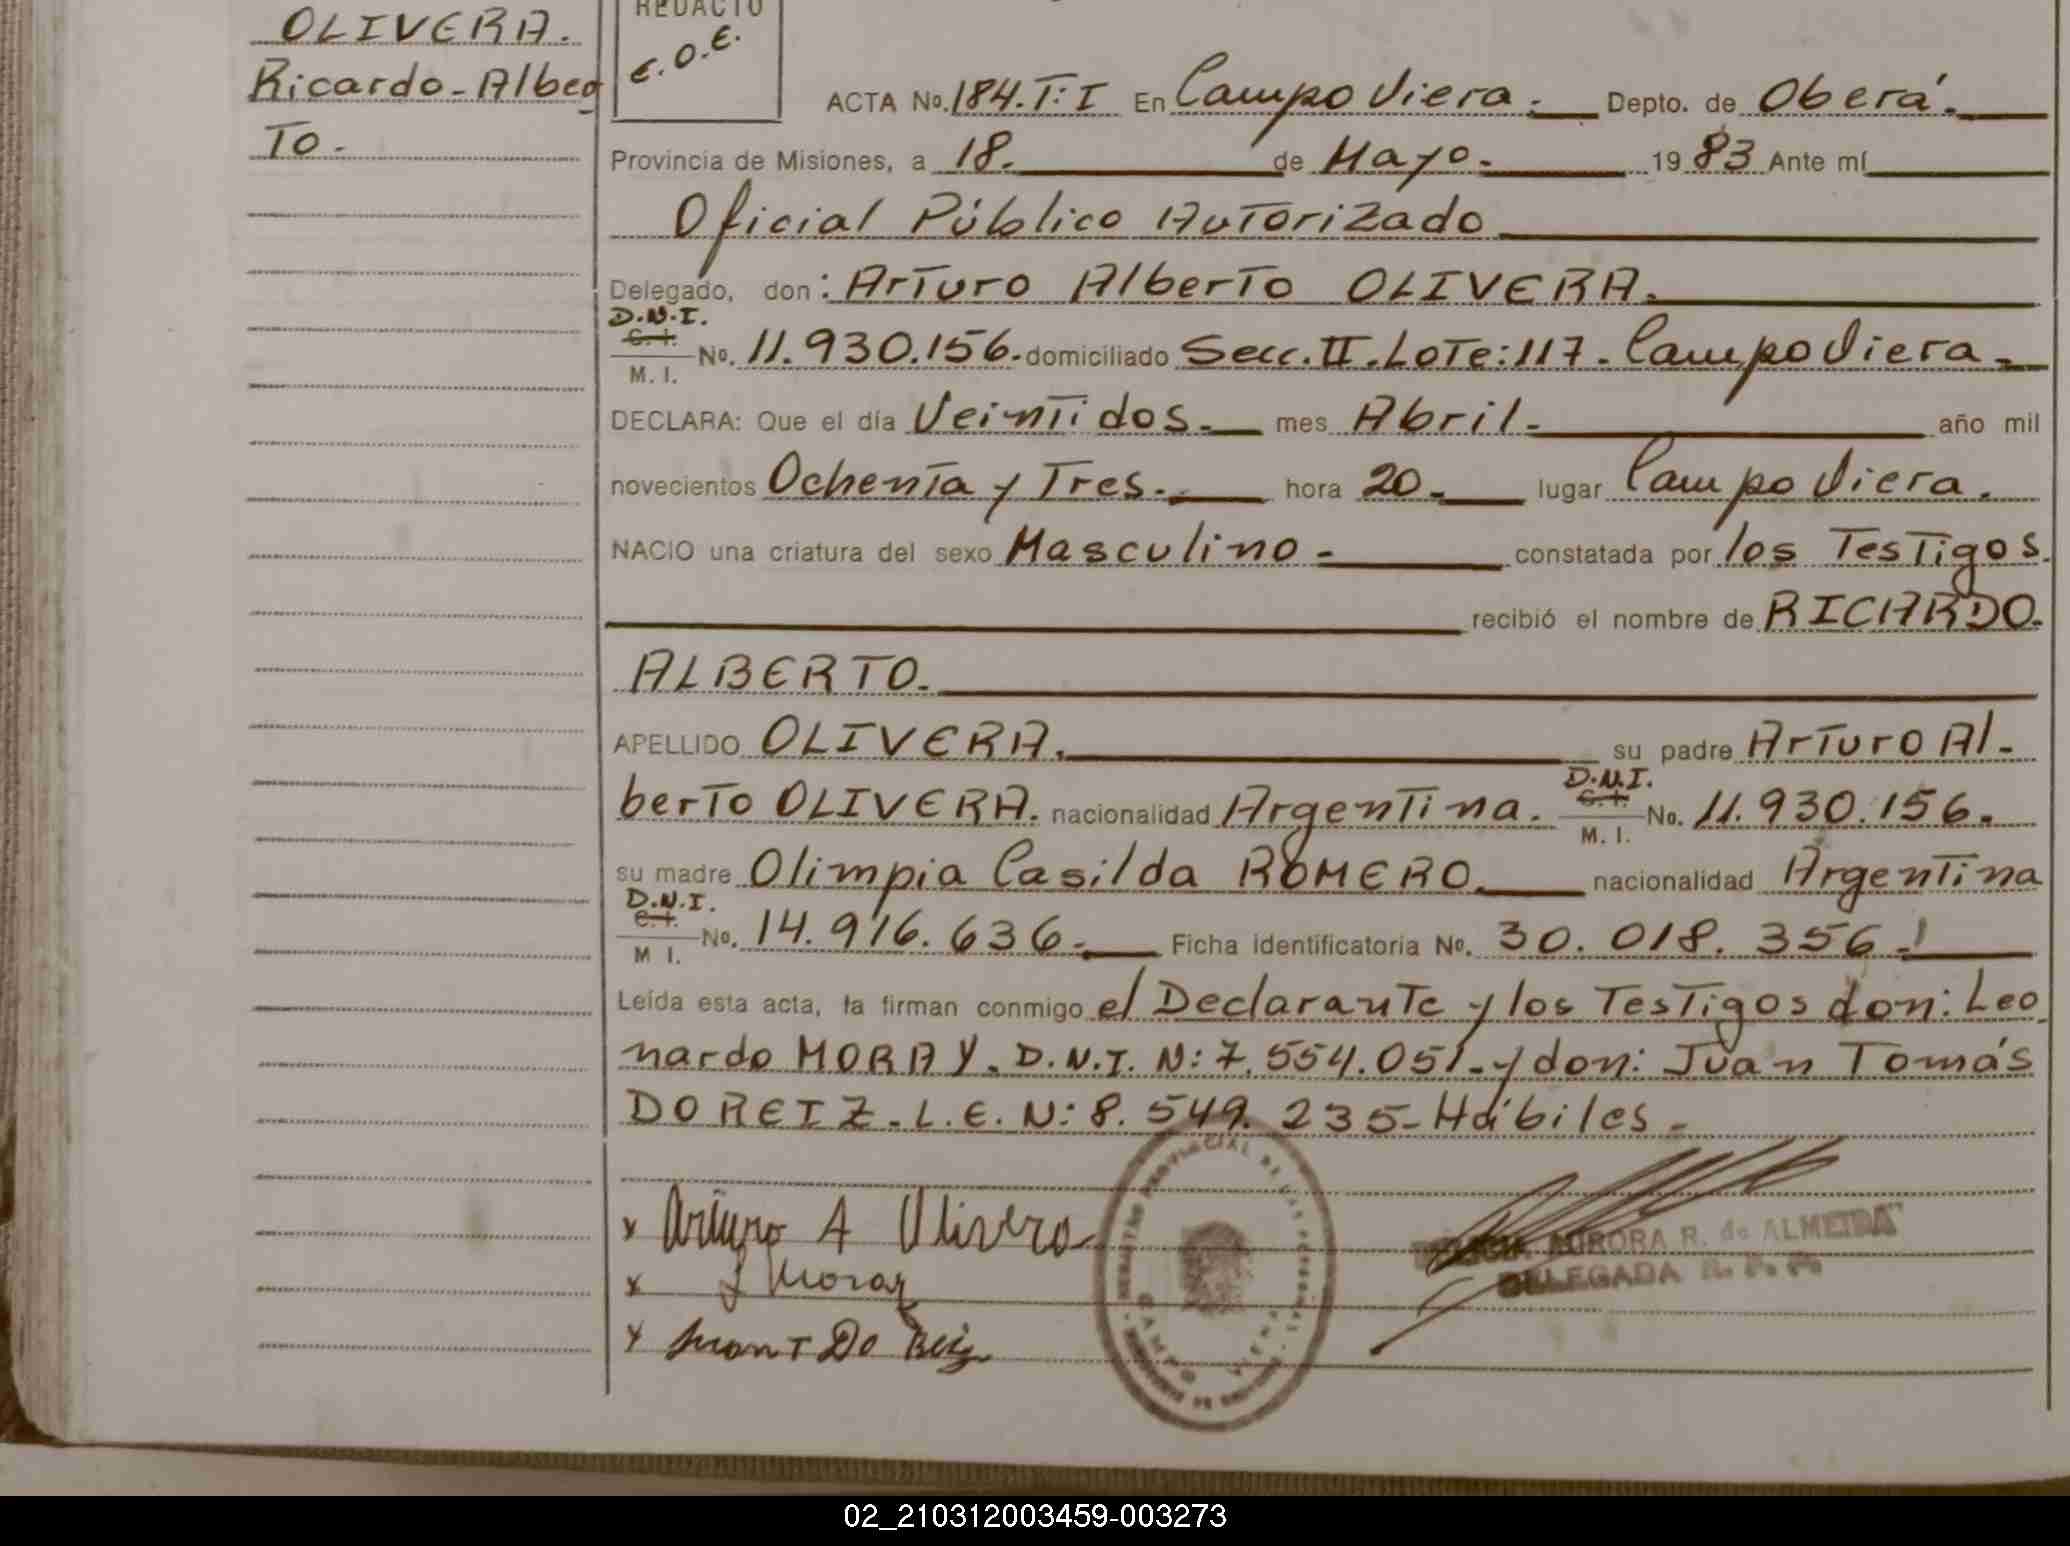 OLIVERA.
Ricardo-Alber
To.
REDACTO
E.O.E.
ACTA No. 184.T:I En Campo Viera. Depto. de Oberá.
Provincia de Misiones, a 18. de Mayo. 19 83 Ante mí
Oficial Público Autorizado
Delegado, don: Arturo Alberto OLIVERA.
D.N.I.
C.I.
M. I.
No. 11.930.156. domiciliado Secc. II. Lote: 117. Campo Viera.
DECLARA: Que el día Veintidos. mes Abril. año mil
novecientos Ochenta y Tres. hora 20. lugar Campo Viera.
NACIO una criatura del sexo Masculino. constatada por los Testigos.
recibió el nombre de RICARDO.
ALBERTO.
APELLIDO OLIVERA. su padre Arturo Al-
berto OLIVERA. nacionalidad Argentina. D.N.I. C.I. M. I. No. 11.930.156.
su madre Olimpia Casilda ROMERO. nacionalidad Argentina
D.N.I. C.I. M I. No. 14.916.636. Ficha identificatoria No. 30.018.356.
Leída esta acta, la firman conmigo el Declarante y los Testigos don: Leo
nardo MORAY. D.N.I. N: 7.554.051. y don: Juan Tomás
DO REIZ. L.E. N: 8.549.235- Hábiles.
x Arturo A Olivera
x L Moray
x Juan T Do Reiz
REGISTRO PROVINCIAL DE LAS PERSONAS
CAMPO VIERA
AURORA R. de ALMEIDA
DELEGADA R. P. P.
02_210312003459-003273